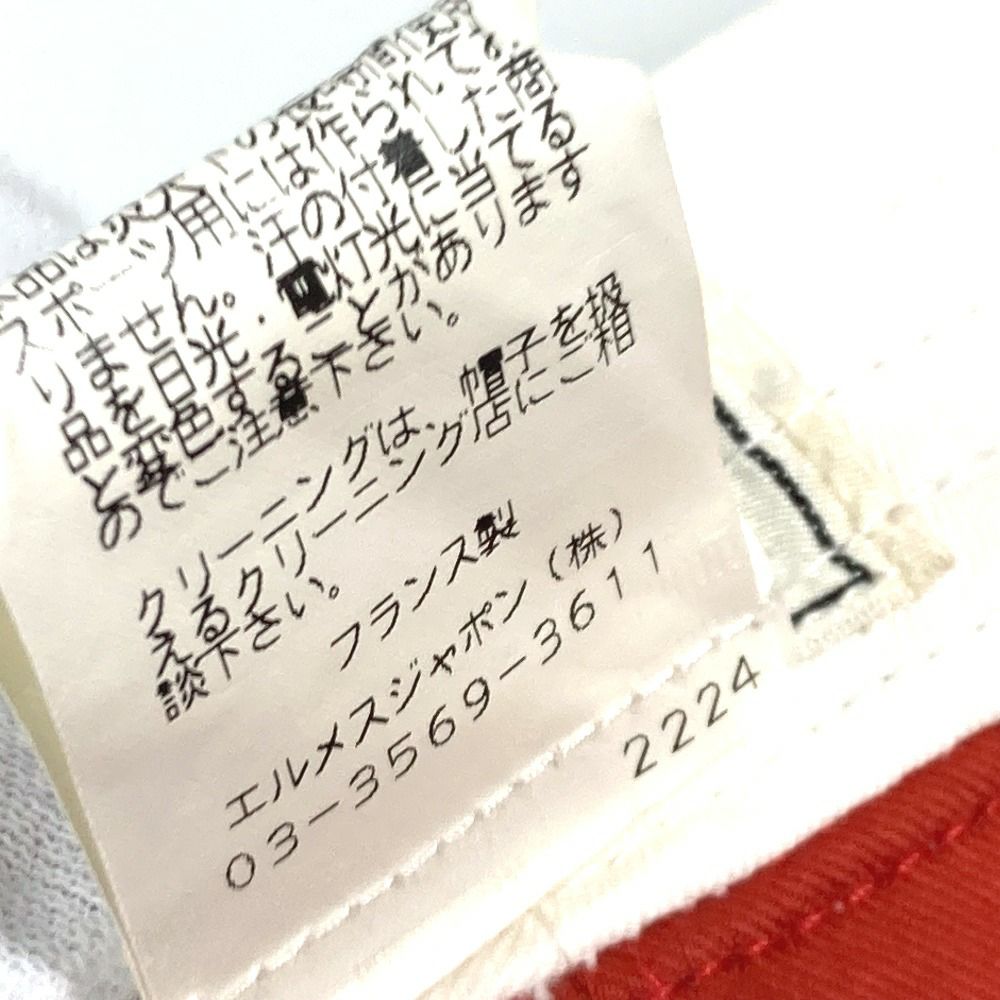 品は炎天下の長時間使
スポーツ用には作られて
りません。汗の付着した商
品を日光・電灯光に当てる
と変色することがあります
のでご注意下さい。
クリーニングは、帽子を扱
えるクリーニング店にご相
談下さい。
フランス製
エルメスジャポン(株)
03-3569-3611
2224